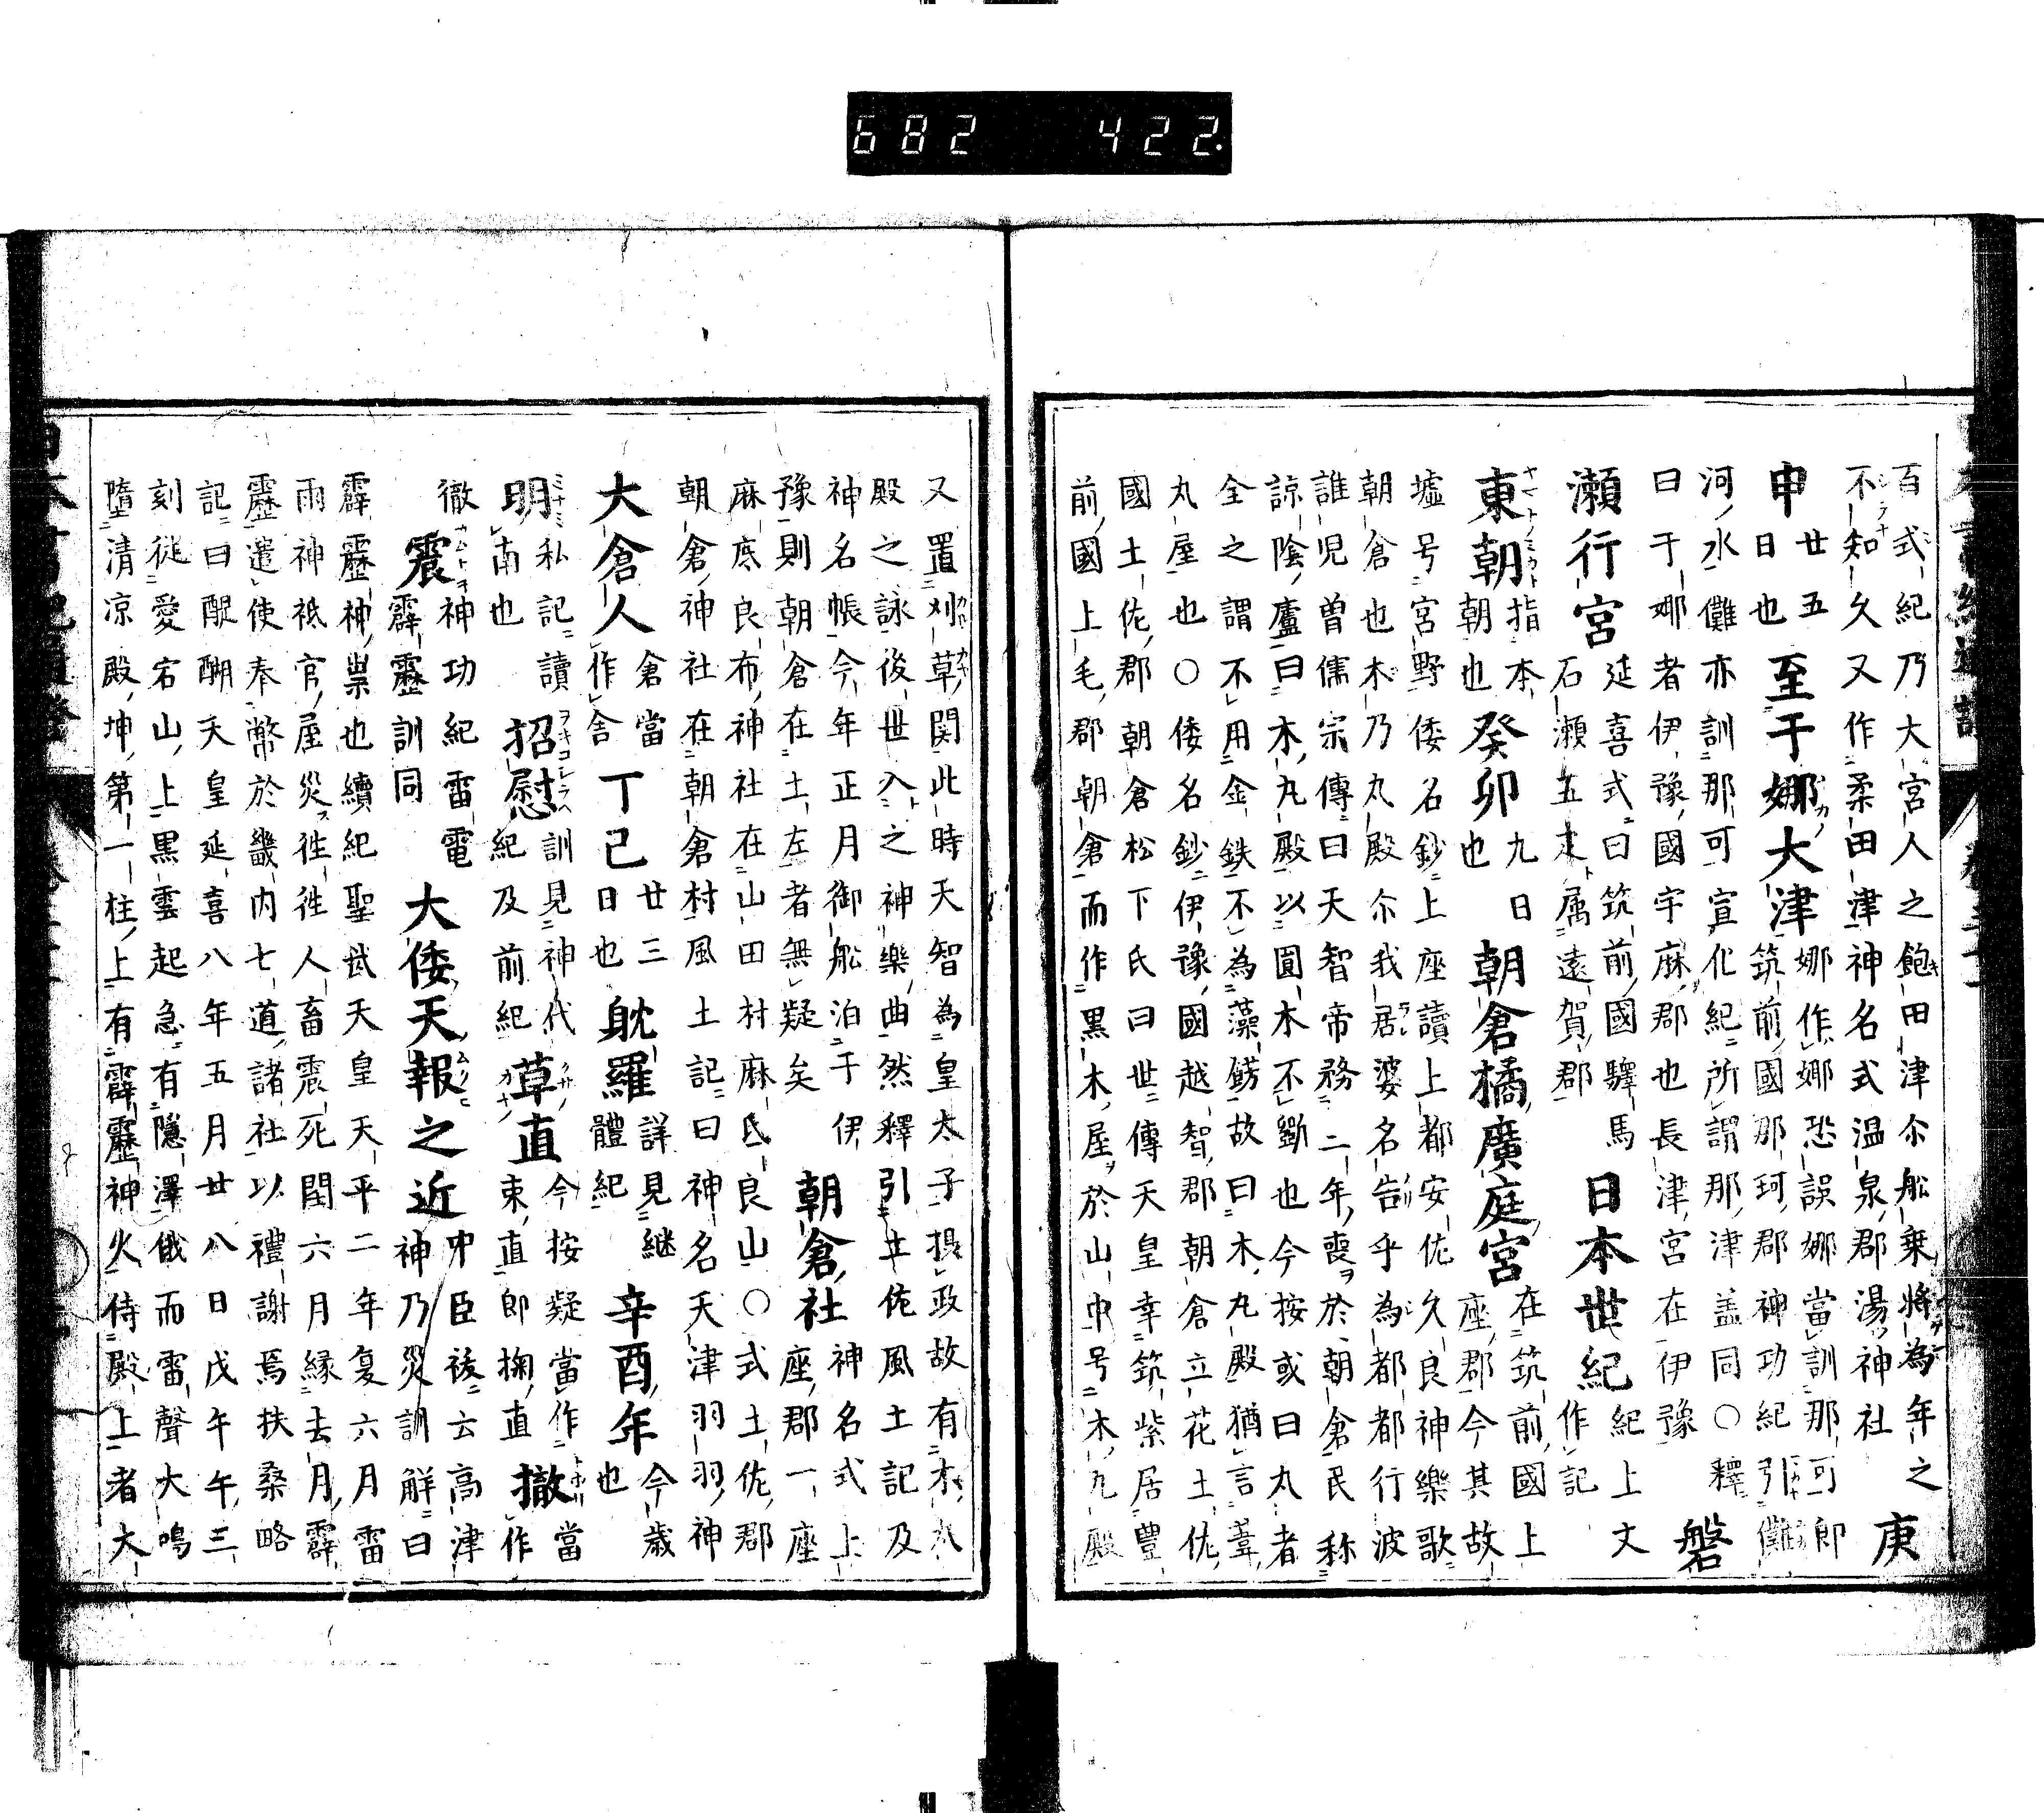 682 422.
百式紀乃大宮人之飽田津尓舩乗将為年之
不知久又作柔田津神名式温泉郡湯神社 庚
申 廿五日也 至于娜大津 娜作娜恐誤娜當訓那可郎
筑前國那珂郡神功紀引儺
河水儺亦訓那可宣化紀所謂那津盖同〇釋
曰于娜者伊豫國宇麻郡也長津宮在伊豫 磐
瀬行宮 延喜式曰筑前國驛馬
石瀬五疋属遠賀郡 日本世紀 紀上文
作記
東朝 指本
朝也 癸卯 九日
也 朝倉橘廣庭宮 在筑前國上
座郡今其故
墟号宮野倭名鈔上座讀上都安佐久良神樂歌
朝倉也木乃丸殿尓我居婆名告乎為都都行波
誰児曽儒宗傳曰天智帝務二年喪於朝倉民称
諒陰廬曰木丸殿以圓木不斲也今按或曰丸者
全之謂不用金鉄不為藻鎊故曰木丸殿猶言葦
丸屋也〇倭名鈔伊豫國越智郡朝倉立花土佐
國土佐郡朝倉松下氏曰世傳天皇幸筑紫居豊
前國上毛郡朝倉而作黒木屋於山中号木丸殿
又置刈草関此時天智為皇太子摂政故有木丸
殿之詠後世入之神樂曲然釋引土佐風土記及
神名帳今年正月御舩泊于伊 朝倉社 神名式上
豫則朝倉在土左者無疑矣 座郡一座
麻底良布神社在山田村麻氐良山〇式土佐郡
朝倉神社在朝倉村風土記曰神名天津羽羽神
大倉人 倉當
作舎 丁巳 廿三
日也 耽羅 詳見継
體紀 辛酉年 今歳
也
明 私記讀
南也 招慰 訓見神代
紀及前紀 草直 今按疑當作
束直郎掬直 撤 當
作
徹 震 神功紀雷電
霹靂訓同 大倭天報之近 中臣後云高津
神乃災訓解曰
霹靂神祟也續紀聖武天皇天平二年夏六月雷
雨神祇官屋災徃徃人畜震死閏六月縁去月霹
靂遣使奉幣於畿内七道諸社以禮謝焉扶桑略
記曰醍醐天皇延喜八年五月廿八日戊午午三
刻従愛宕山上黒雲起急有隠澤俄而雷聲大鳴
墮清凉殿坤第一柱上有霹靂神火侍殿上者大